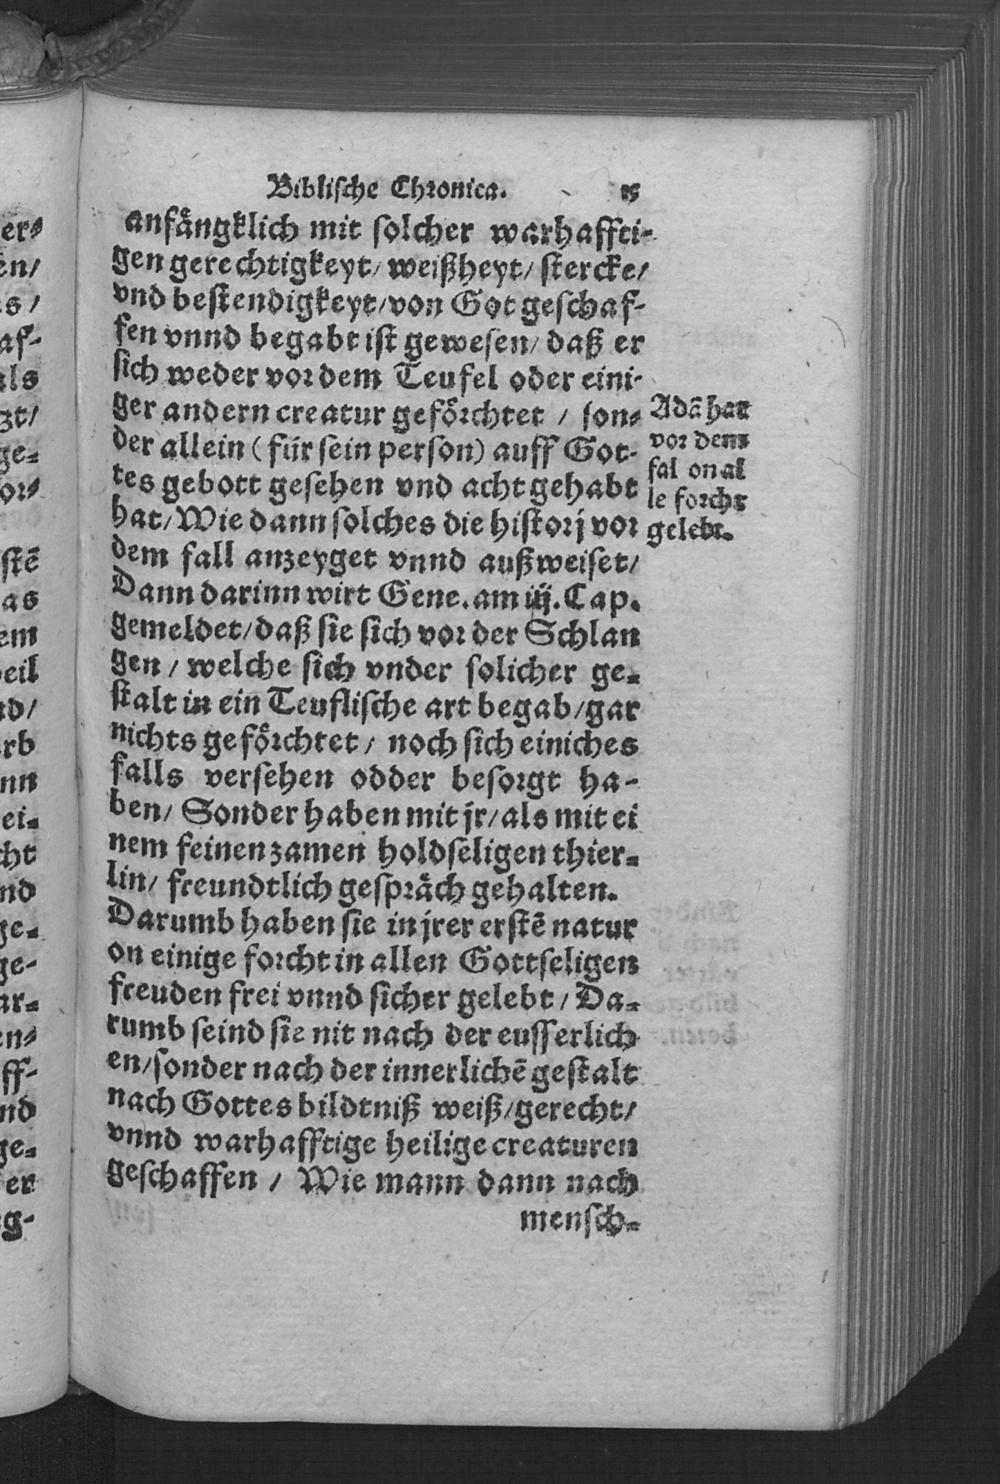 Biblische Chronica. 15
anfängklich mit solcher warhaffti-
gen gerechtigkeyt/ weißheyt/ stercke/
vnd bestendigkeyt/ von Got geschaf-
fen vnnd begabt ist gewesen/ daß er
sich weder vor dem Teufel oder eini-
ger andern creatur geförchtet / son-
der allein (für sein person) auff Got-
tes gebott gesehen vnd acht gehabt
hat/ Wie dann solches die historj vor
dem fall anzeyget vnnd außweiset/
Dann darinn wirt Gene. am iij. Cap.
gemeldet/ daß sie sich vor der Schlan
gen / welche sich vnder solicher ge-
stalt in ein Teuflische art begab/ gar
nichts geförchtet / noch sich einiches
falls versehen odder besorgt ha-
ben/ Sonder haben mit jr/ als mit ei
nem feinen zamen holdseligen thier-
lin/ freundtlich gespräch gehalten.
Darumb haben sie in jrer erstē natur
on einige forcht in allen Gottseligen
freuden frei vnnd sicher gelebt / Da-
rumb seind sie nit nach der eusserlich
en/ sonder nach der innerlichē gestalt
nach Gottes bildtniß weiß/ gerecht/
vnnd warhafftige heilige creaturen
geschaffen / Wie mann dann nach
mensch-
Adā hat
vor dem
fal on al
le forcht
gelebt.
er-
en/
s /
af-
als
zt/
ge-
or-
stē
as
em
eil
nd/
rb
nn
ei-
cht
nd
ge-
ge-
ar-
en-
ff-
nd
ge-
er
g-